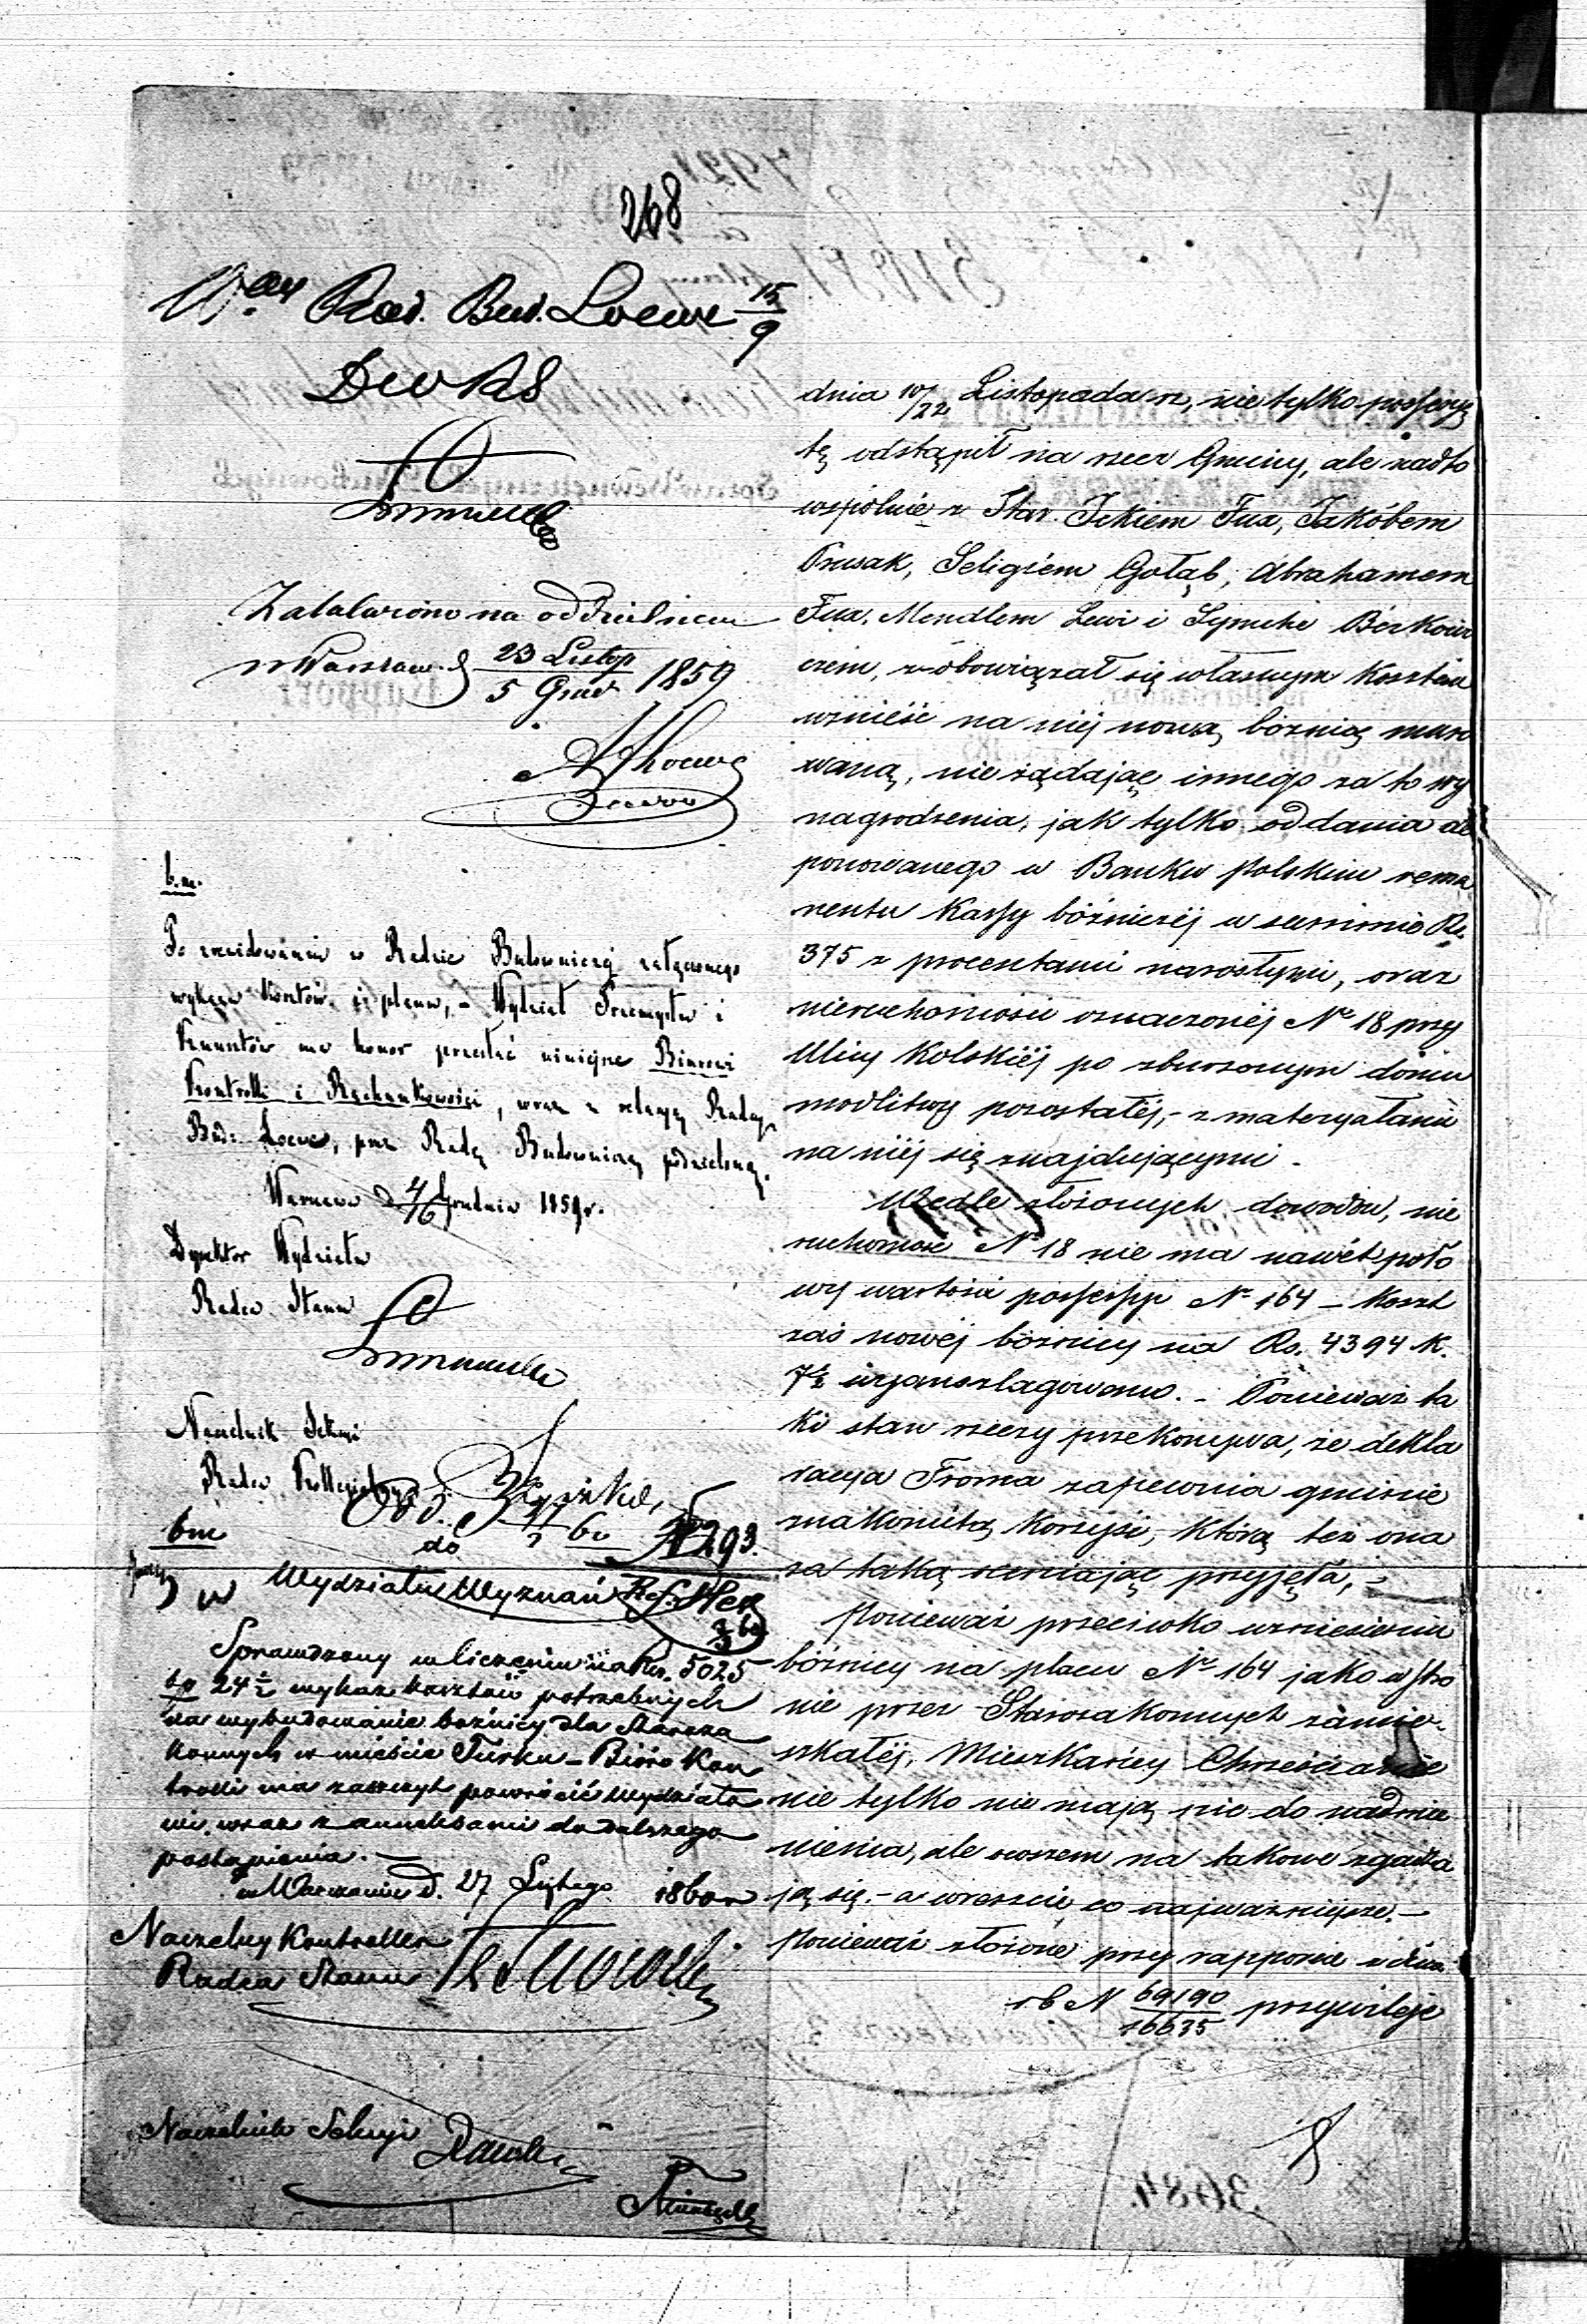 268
Rad. Bud. Loewe 15/9
Załatwiono na oddzielnem
w Warszaw. d 23 Listop/5 Grud 1859
b.m.
Po zrewidowaniu w Radzie Budowniczej załączonego
wykazu kosztów i planu, – Wydział Przemysłu i
Kunsztów ma honor przesłać niniejsze Biurowi
Kontrolli i Rachunkowości, wraz z relacyą Radcy
Bud: Loewe, przez Radę Budowniczą podzieloną.
Warszawa d 4/16 Grudnia 1859 r.
Dyrektor Wydziału
Radca Stanu
Naczelnik Sekcyi
Radca Kollegialny
bm
do
293.
w Wydziału Wyznań
Sprawdzony w liczeniu na Rs. 5025
kp 24½ wykaz kosztów potrzebnych
na wybudowanie bożnicy dla Staroza
konnych w mieście Turku – Bióro Kon
trolli ma zaszczyt powrócić Wydziało
wi wraz z annexami do dalszego
postąpienia. –
w Warszawie d. 27 Lutego 1860 r
Naczelny Kontroller
Radca Stanu
Naczelnik Sekcyi
dnia 10/22 Listopada r. z, nie tylko possesyę
tę odstąpił na rzecz Gminy, ale nadto
wspólnie z Star. Ickiem Fux, Jakóbem
Prusak, Seligiem Gołąb, Abrahamem
Fux, Mendlem Lewi i Symche Berkowi
czem, zobowiązał się własnym kosztem
wznieść na niéj nową bóżnicę muro
waną, nie żądając innego za to wy
nagrodzenia, jak tylko oddania de
ponowanego w Banku Polskim rema
nentu Kassy bóżniczéj w summie Rs.
375 z procentami narosłymi, oraz
nieruchomości oznaczonéj Nº 18 przy
Ulicy Kolskiéj po zburzonym domu
modlitwy pozostałéj, – z materyałami
na niéj się znajdującymi.
Wedle złożonych dowodów, nie
ruchomość Nº 18 nie ma nawét poło
wy wartości possessyi Nº 164 – koszt
zaś nowéj bóżnicy na Rs. 4394 k.
7½ wyanszlagowano. – Ponieważ ta
ki stan rzeczy przekonywa, że dekla
racya Froma zapewnia gminie
znakomitą korzyść, którą też ona
za taką oceniając przyjęła, –
Ponieważ przeciwko wzniesieniu
bóżnicy na placu Nº 164 jako w stro
nie przez Starozakonnych zamie
szkałéj, Mieszkańcy Chrześcianie
nie tylko nie mają nic do nadmie
nienia, ale owszem na takowe zgadza
ją się. – a wreszcie, co najważniejsze. –
Ponieważ złożone przy rapporcie z dnia
rb N 69190/16635 przywileje
3684.